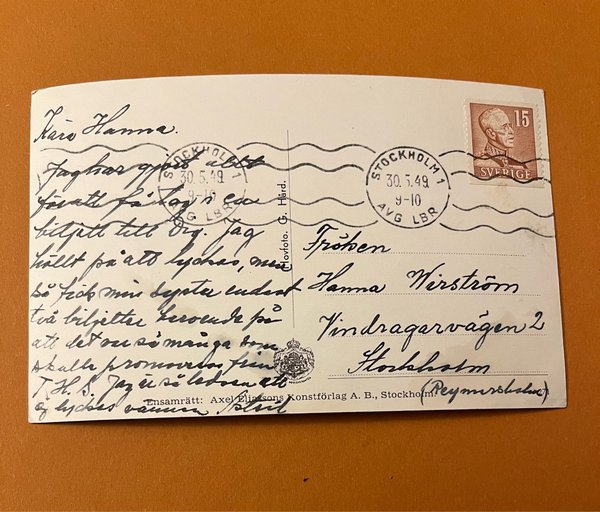 Kära Hanna.
Jag har gjort allt
för att få dag's en
biljett till Dig. Jag
höllt på att lyckas, men
så fick min syster endast
två biljetter beroende på
att det var så många som
skulle promoveras från
T.H.S. Jag är så ledsen att
ej lyckes
STOCKHOLM 1
30.5.49
9-10
AVG LBR
STOCKHOLM 1
30.5.49
9-10
AVG LBR
15
SVERIGE
Hovfoto. G. Hård.
Fröken
Hanna Wirström
Vindragarvägen 2
Stockholm
(Reymersholm)
Ensamrätt: Axel Eliassons Konstförlag A. B., Stockholm